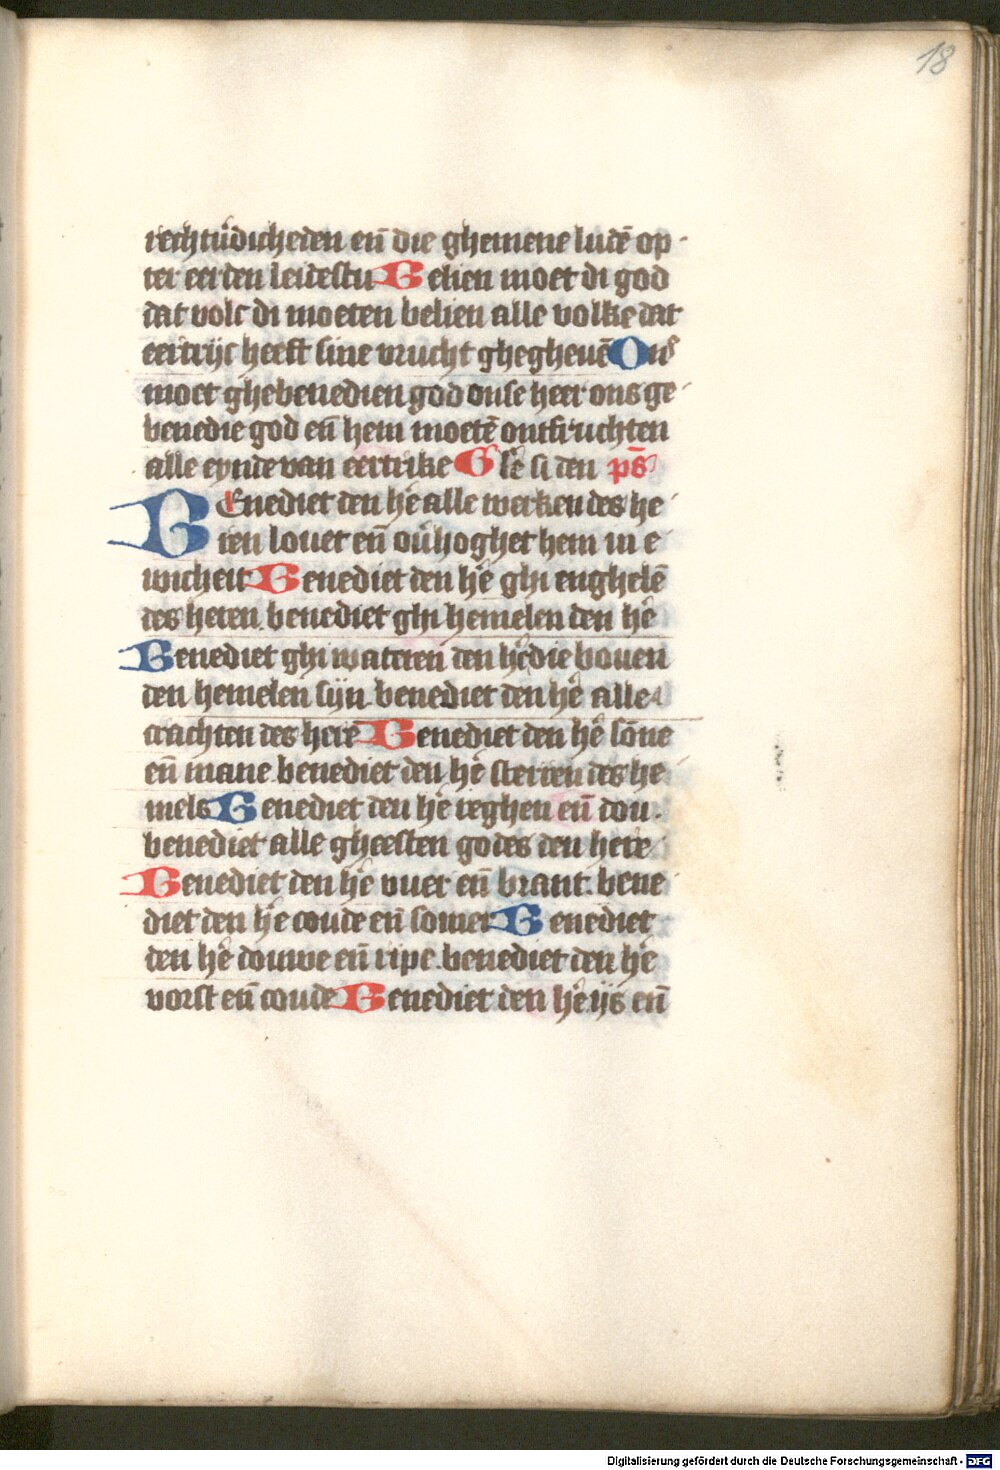 18
rechtůdicheden eñ die ghemene ludē op
ter eerden leidestu Belien moet di god
dat volc di moeten belien alle volke dat
eertrijc heeft sine vrucht ghegheuē Ons
moet ghebenedien god onse heer ons ge
benedie god eñ hem moetē ontfruchten
alle eynde van eertrike Glē si den ps̄
BEnediet den hē alle werken des he
ren louet eñ oůhoghet hem in e
wicheit Benediet den hē ghi enghelē
des heren. benediet ghi hemelen den hē
Benediet ghi wateren den hē die bouen
den hemelen sijn. benediet den hē alle
crachten des herē Benediet den hē sōne
eñ mane. benediet den hē sterren des he
mels Benediet den hē reghen eñ dou.
benediet alle gheesten godes den here
Benediet den hē vuer eñ brant. bene
diet den hē coude eñ somer Benediet
den hē douwe eñ ripe. benediet den hē
vorst eñ coude Benediet den hē ijs eñ
Digitalisierung gefördert durch die Deutsche Forschungsgemeinschaft - DFG